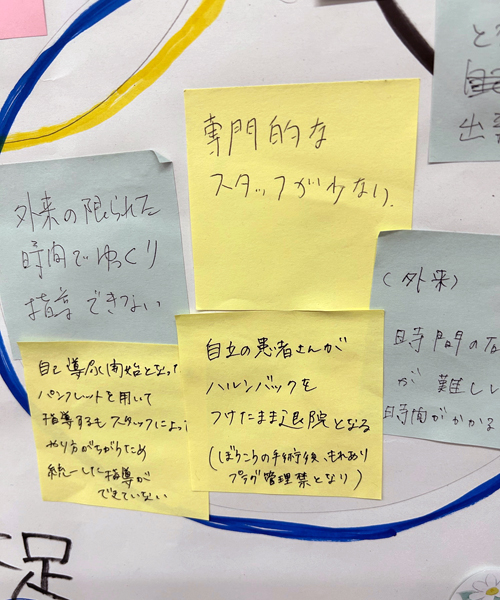 専門的な
スタッフが少ない.
外来の限られた
時間でゆっくり
指導できない
(外来)
時間の
が難しい
時間がかかる
自己導尿開始となった
パンフレットを用いて
指導するもスタッフによって
やり方がちがうため
統一した指導が
できていない
自立の患者さんが
ハルンバックを
つけたまま退院となる
(ぼうこうの手術後、もれあり
プラグ管理禁となり)
足